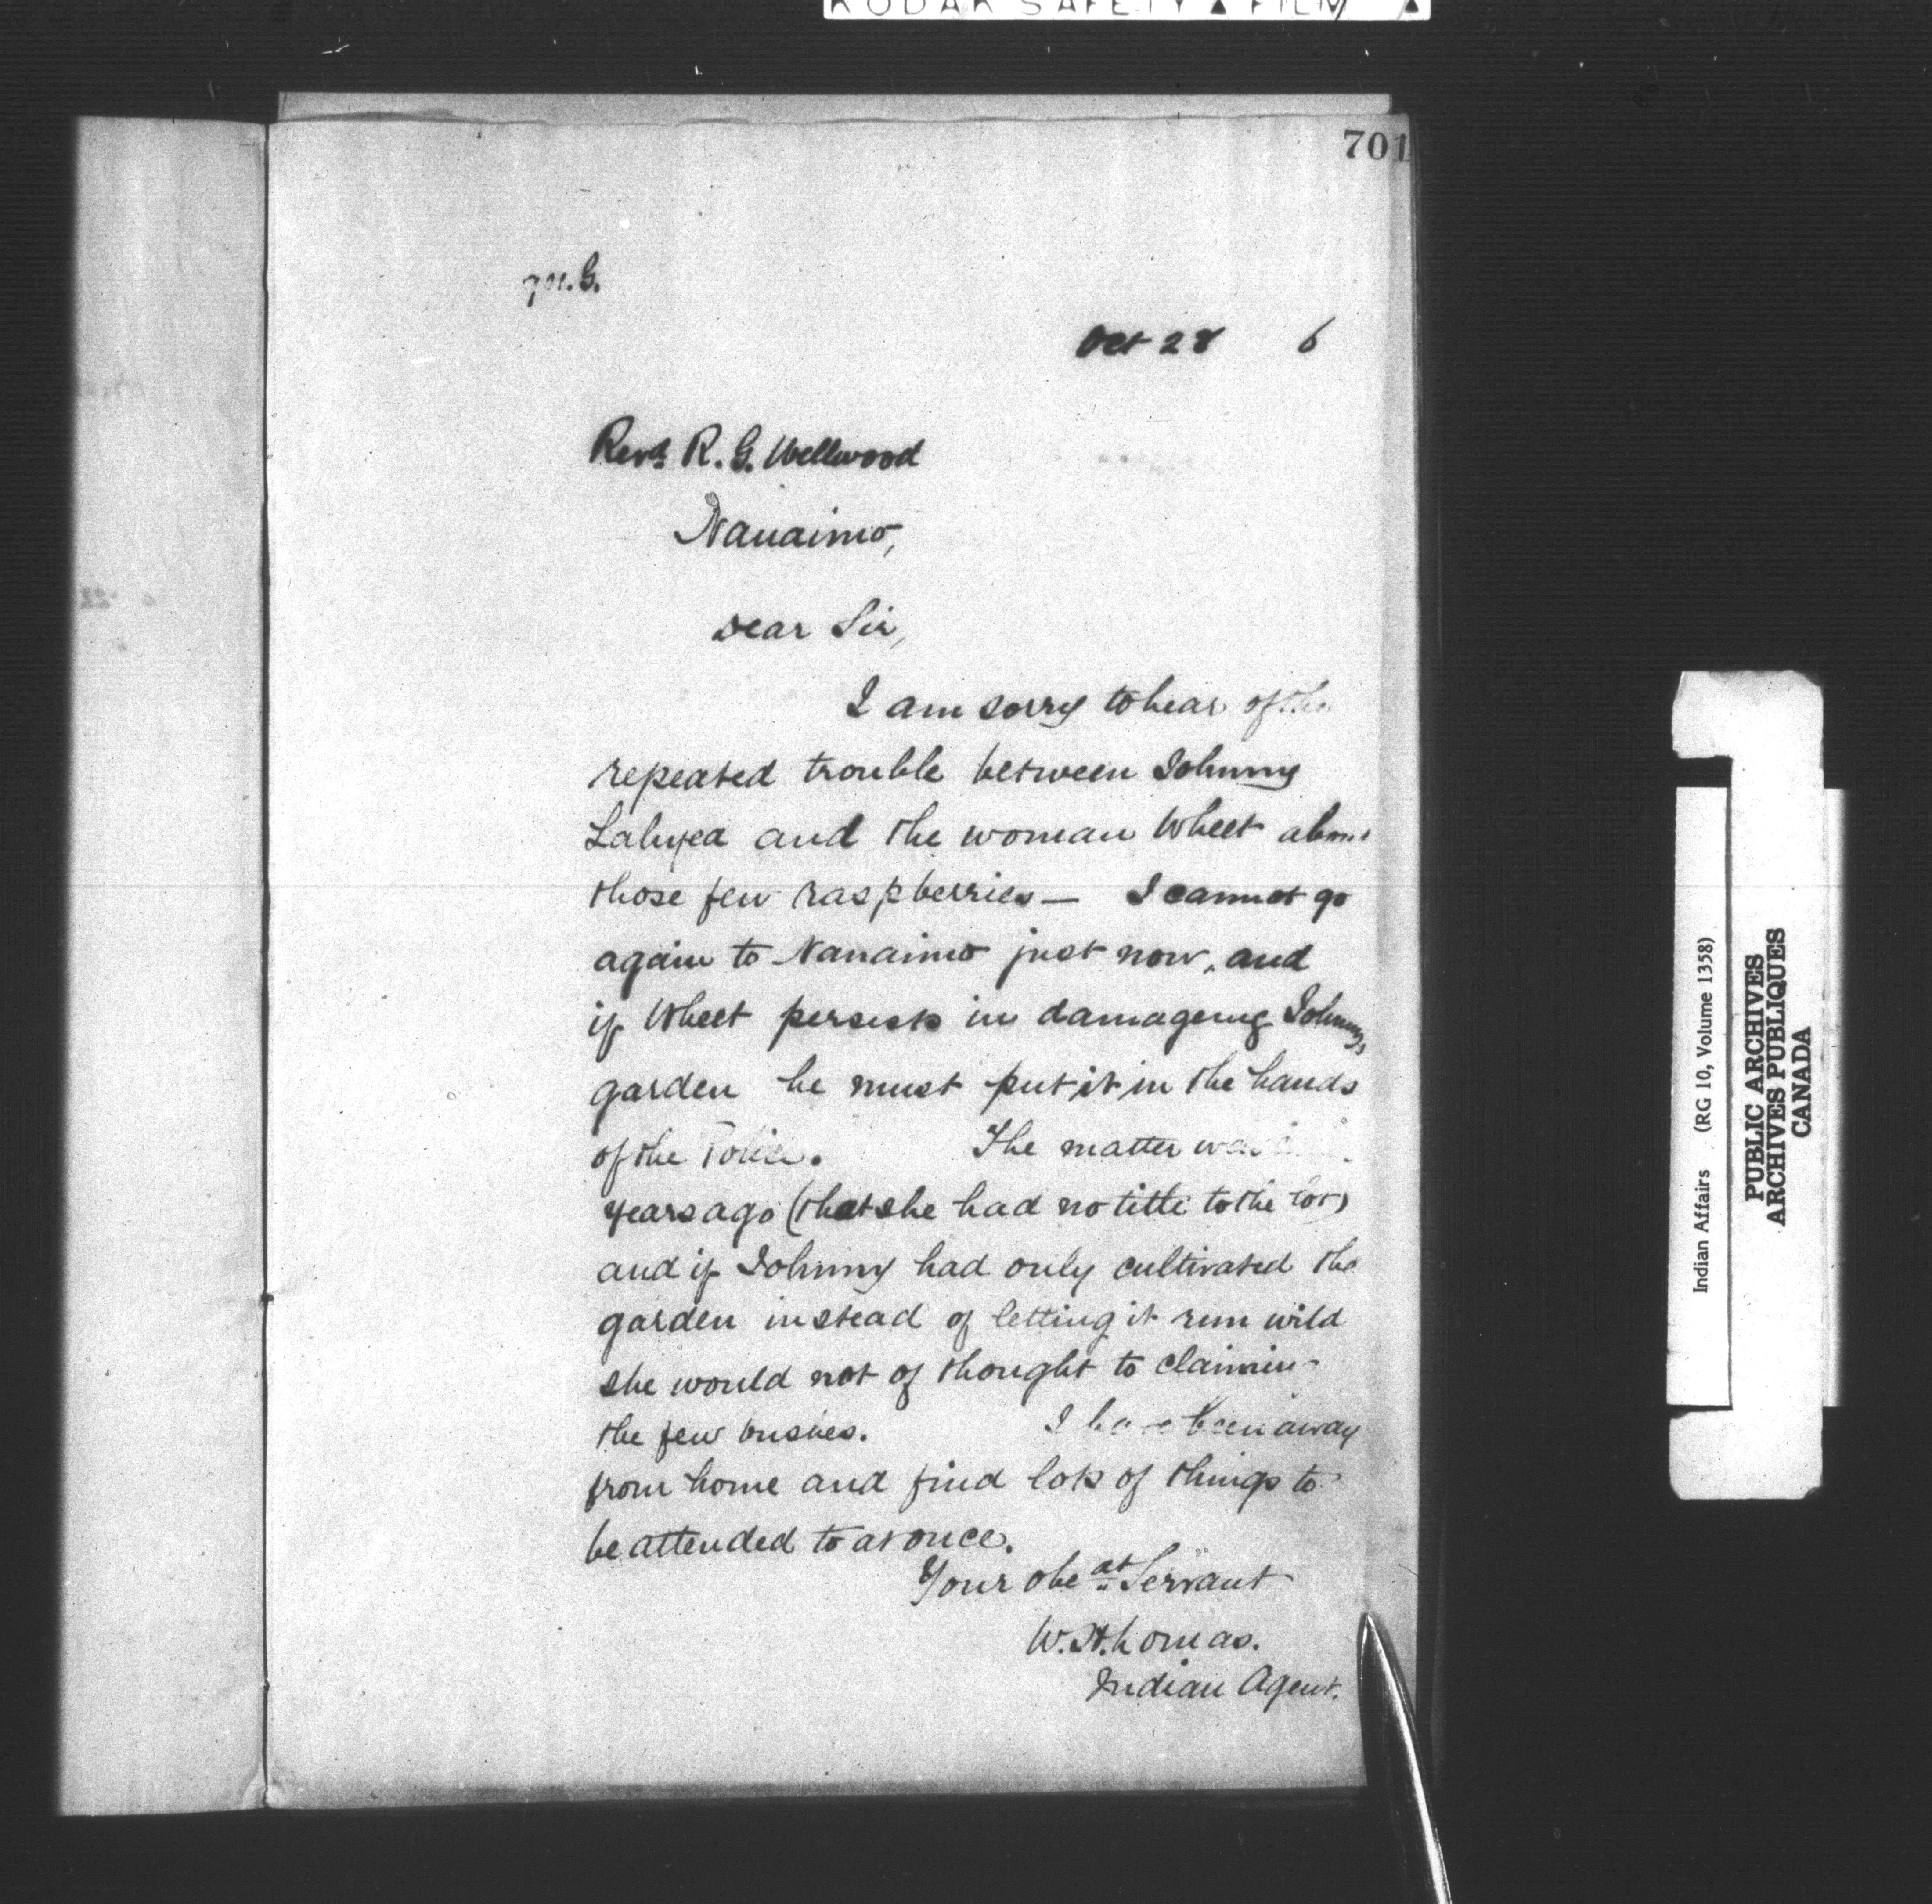 KODAK SAFETY ▲ FILM ▲
701
Oct 28 6
Revd. R. G. Wellwood
Nanaimo,
Dear Sir,
I am sorry to hear of the
repeated trouble between Johnny
and the woman Wheet about
those few raspberries — I cannot go
again to Nanaimo just now, and
if Wheet persists in damageing Johnnys
garden he must put it in the hands
of the Police. The matter was
years ago (that she had no title to the lot)
and if Johnny had only cultivated the
garden instead of letting it run wild
she would not of thought to claimin
the few bushes. I have been away
from home and find lots of things to
be attended to at once.
Your obe at Servant
W. H. Lomas.
Indian Agent.
Indian Affairs (RG 10, Volume 1358)
PUBLIC ARCHIVES
ARCHIVES PUBLIQUES
CANADA